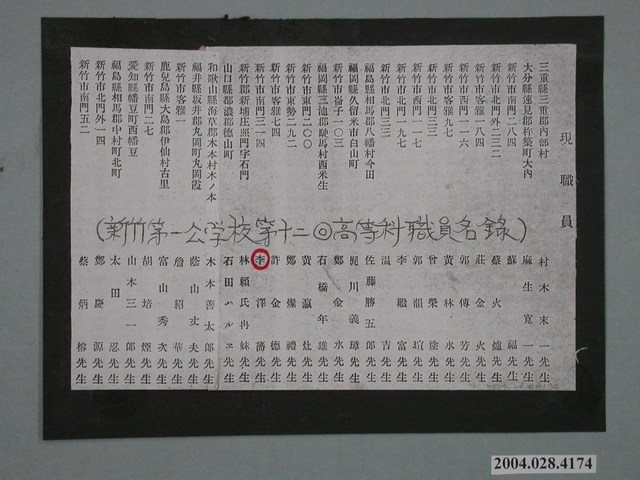 現職員
三重縣三重郡內部村
大分縣速見郡杵築町大內
新竹市南門二八四
新竹市北門外二三二
新竹市客雅一八四
新竹市西門一一六
新竹市客雅九七
新竹市北門二三三
新竹市西門一一七
新竹市北門一九七
新竹市北門三三
福島縣相馬郡八幡村今田
福岡縣久留米市白山町
新竹市崙子一〇三
福岡縣三池郡駛馬村西米生
新竹市東門二〇〇
新竹市東勢二九二
新竹市客雅七四
新竹市南門三一四
新竹郡新埔庄照門字石門
山口縣都濃郡德山町
和歌山縣海草郡木本村木ノ本
福井縣坂井郡丸岡町丸岡霞
新竹市客雅一
鹿兒島縣大島郡伊仙村古里
新竹市南門二七
愛知縣幡豆郡西幡豆
福島縣相馬郡中村町北町
新竹市北門外一四
新竹市南門五二
(新竹第一公学校第十二回高等科職員名錄)
村木末一先生
麻生寬一先生
蘇福先生
蔡火爐先生
莊金火先生
郭傳芳先生
黃林水先生
曾榮塗先生
郭頭瑄先生
李繼富先生
溫吉先生
佐藤勝五郎先生
梶川義璋先生
鄭金水先生
石橋年雄先生
黃瀛灶先生
鄭燦禮先生
許金德先生
李澤藩先生
林賴氏冉妹先生
石田ハルヱ先生
木本善太郎先生
蔭山丈夫先生
詹紹華先生
富山秀次先生
胡培煙先生
山本三一郎先生
太田忍先生
鄭慶源先生
蔡炳榕先生
2004.028.4174